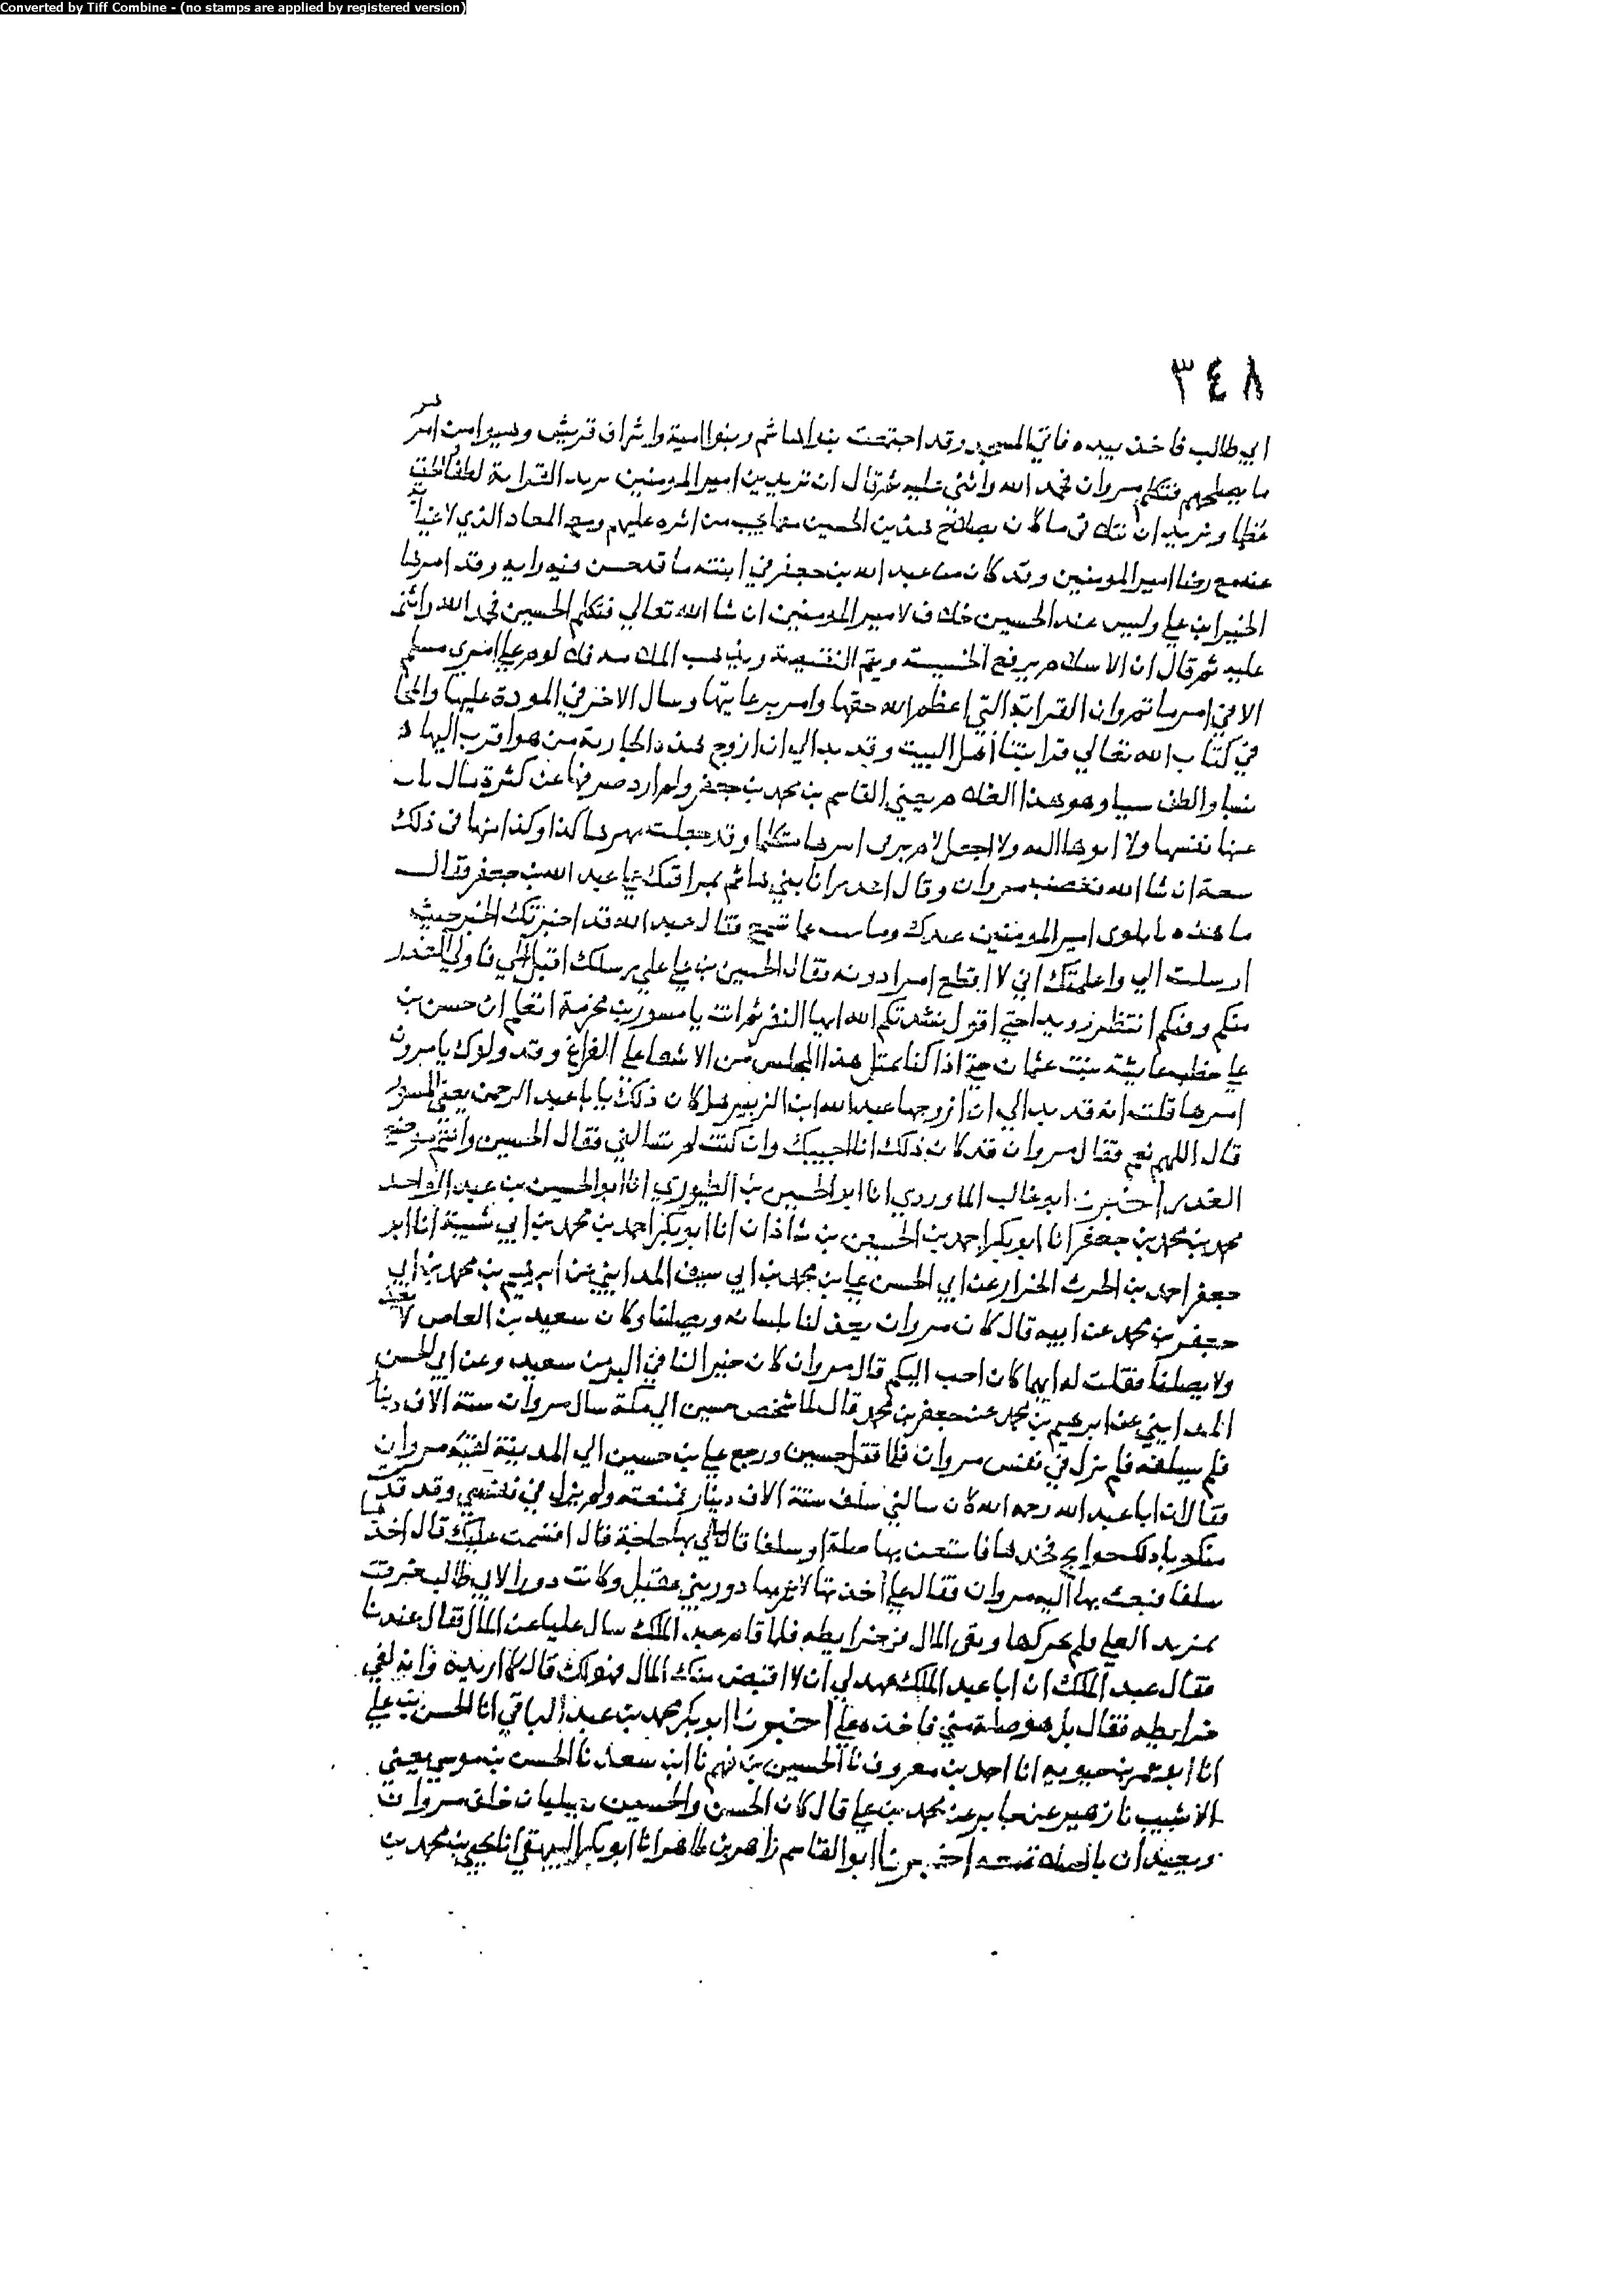 Converted by Tiff Combine - (no stamps are applied by registered version)
٣٤٨
ابي طالب فاخذ بيده فاتي المسجد وقد اجتمعت بنوا هاشم وبنوا امية واشراف قريش وهيوا من امر
ما يصلحهم فتكلم مروان فحمد الله واثني عليه ثم قال ان يزيد بن امير المومنين يريد القرابة لطفا والحق
عظما ويريد ان يتلافى ما كان بصلاح هذين الحيين مع ما يحب من اثره عليهم ومع المعاد الذي لا غنا به
عنه مع رضا امير المومنين وقد كان من عبد الله بن جعفر في ابنته ما قد حسن فيه رايه وقد امرها
الحسين بن علي وليس عند الحسين خلاف لامير المومنين ان شا الله تعالي فتكلم الحسين فحمد الله واثنى
عليه ثم قال ان الاسلام يرفع الخسيسة ويتم النقيصة ويذهب الملامة فلا لوم علي امري مسلم
الا في امر ماثم وان القرابة التي اعظم الله حقها وامر برعايتها وسال الاجر في المودة عليها والحافظ
في كتاب الله تعالي قرابتنا اهل البيت وقد بدا لي ان ازوج هذه الجارية من هو اقرب اليها
نسبا والطف سببا وهو هذا الغلام يعني القاسم بن محمد بن جعفر ولم ارد صرفها عن كثرة مال
عنها نفسها ولا ابوها اليه ولا اجعل لامرى في امرها متكلما وقد جعلت مهرها كذا وكذا منها في ذلك
سعة ان شا الله فغضب مروان وقال اغدرا يا بني هاشم ثم اقبل علي عبد الله بن جعفر وقال
ما هذه بايادي امير المومنين عندك وما غبت عما تسمع فقال عبد الله قد اخبرتك الخبر حيث
ارسلت الي واعلمتك اني لا اقطع امرا دونه فقال الحسين بن علي علي رسلك اقبل الي فاول الغدر
منكم وفيكم انتظر رويدا حتي اقول نشدتكم الله ايها النفر ثم انت يا مسور بن مخرمة اتعلم ان حسن بن
علي خطب عايشة بنت عثمان حتي اذا كنا بمثل هذا المجلس من الاشفا علي الفراغ وقد ولوك يا مروان
امرها قلت انه قد بدا لي ان ازوجها عبد الله ابن الزبير هل كان ذلك يا ابا عبد الرحمن يعني المسور
قال اللهم نعم فقال مروان قد كان ذلك انا اجيبك وان كنت لم تسالني فقال الحسين وانتم موضع
الغدر اخبرنا ابو غالب الماوردي انا ابو الحسين بن الطيوري انا ابو الحسين بن عبد الواحد
محمد بن محمد بن جعفر انا ابو بكر احمد بن الحسين بن شاذان انا ابو بكر احمد بن محمد بن ابي شيبة انا ابو
جعفر احمد بن الحرث الخزاز عن ابي الحسن علي بن محمد بن ابي سيف المدايني عن ابرهيم بن محمد بن ابي
جعفر بن محمد عن ابيه قال كان مروان يحد لنا بلسانه ويصلنا وكان سعيد بن العاص لا يحد
ولا يصلنا فقلت له ايهما كان احب اليكم قال مروان كان خيرا لنا في السر من سعيد وعن ابي الحسن
المدايني عن ابرهيم بن محمد عن جعفر بن محمد قال لما شخص حسين الي مكة سال مروان ستة الاف دينار
فلم يسلفه فلم يزل في نفس مروان فلما قتل حسين ورجع علي بن حسين الي المدينة لقيه مروان
فقال ان ابا عبد الله رحمه الله كان سالني سلف ستة الاف دينار فمنعته ولم يزل في نفسي وقد قدمت
منكوبا ولك حوايج فخذها فاستعن بها صلة او سلفا قال ما لي بها حاجة قال اقسمت عليك قال اخذها
سلفا فبعث بها اليه مروان فقال علي اخذتها لاغر بها دور بني عقيل وكانت دورا لابي طالب خربت
يزيد العلي فلم يحركها وبقى المال في خرايطه فلما قام عبد الملك سال عليا عن المال فقال عندنا
فقال عبد الملك ان ابا عبد الملك عهد لي ان لا اقبض منك المال فهو لك قال لا اريده وانه لفي
خرايطه فقال بل هو صلة مني فاخذه علي اخبرنا ابو بكر محمد بن عبد الباقي انا الحسن بن علي
انا ابو عمر بن حيويه انا احمد بن معروف نا الحسين بن فهم نا ابن سعد نا الحسن بن موسي يعني
الاشيب نا زهير عن جابر عن محمد بن علي قال كان الحسن والحسين يصليان خلف مروان
ويعيدان بالصلاة معه اخبرنا ابو القاسم زاهر بن طاهر انا ابو بكر البيهقي انا يحيي بن محمد بن